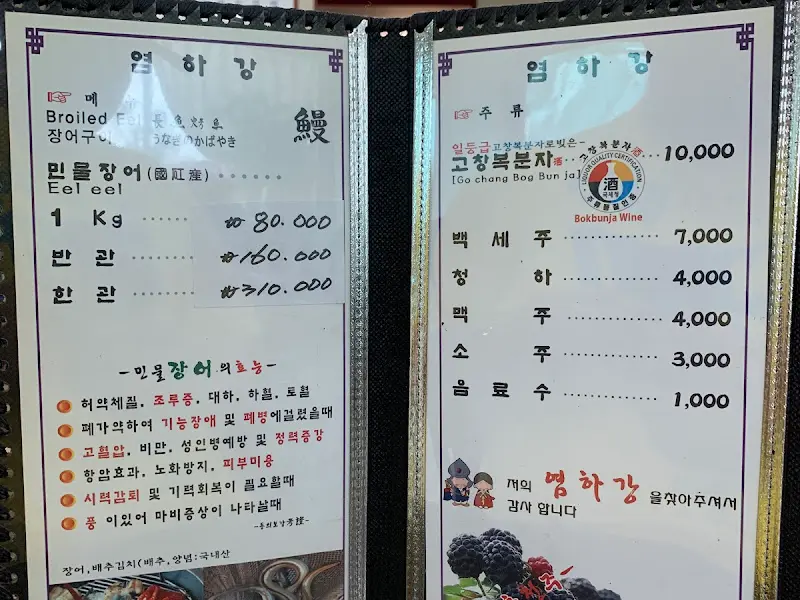 염하강
☞ 메
Broiled Eel 長魚烤魚
장어구이 うなぎのかばやき
鰻
민물장어(國紅産) ······
Eel eel
1 Kg ······ ₩ 80.000
반 관 ········ ₩160.000
한 관 ········ ₩310.000
-민물장어의효능-
허약체질, 조루증, 대하, 하혈, 토혈
폐가약하여 기능장애 및 폐병에걸렸을때
고혈압, 비만, 성인병예방 및 정력증강
항암효과, 노화방지, 피부미용
시력감퇴 및 기력회복이 필요할때
풍 이있어 마비증상이 나타날때
장어,배추김치(배추,양념:국내산
염하강
☞ 주 류
일등급고창복분자로빚은-
고창복분자酒 ········ 10,000
[Go chang Bog Bun ja]
고창복분자酒
LIQUOR QUALITY CERTIFICATION
酒
국세청
주류품질인증
Bokbunja Wine
백 세 주 ············· 7,000
청 하 ············· 4,000
맥 주 ············· 4,000
소 주 ············· 3,000
음 료 수 ············· 1,000
저의 염하강 을찾아주셔서
감사 합니다